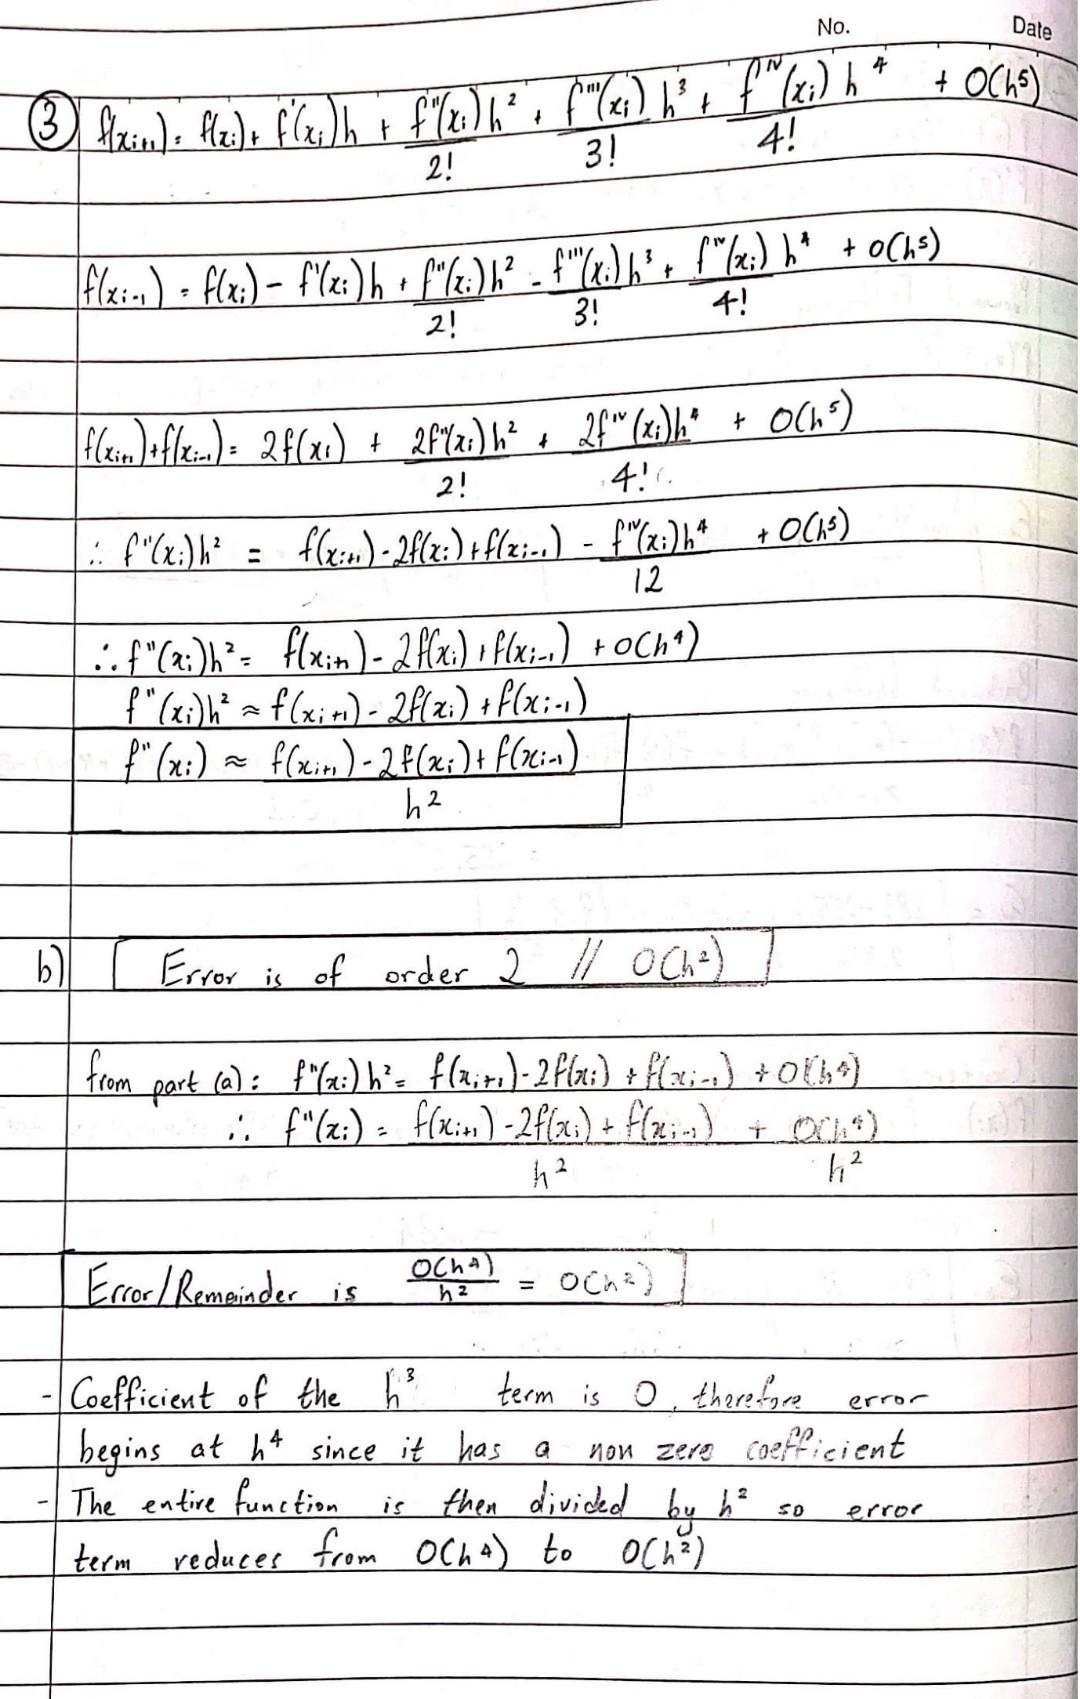 No. Date
③ f(xᵢ₊₁) = f(xᵢ) + f'(xᵢ)h + f''(xᵢ)h²/2! + f'''(xᵢ)h³/3! + fⁱᵛ(xᵢ)h⁴/4! + O(h⁵)
f(xᵢ₋₁) = f(xᵢ) - f'(xᵢ)h + f''(xᵢ)h²/2! - f'''(xᵢ)h³/3! + fⁱᵛ(xᵢ)h⁴/4! + O(h⁵)
f(xᵢ₊₁)+f(xᵢ₋₁) = 2f(xᵢ) + 2f''(xᵢ)h²/2! + 2fⁱᵛ(xᵢ)h⁴/4! + O(h⁵)
∴ f''(xᵢ)h² = f(xᵢ₊₁)-2f(xᵢ)+f(xᵢ₋₁) - fⁱᵛ(xᵢ)h⁴/12 + O(h⁵)
∴ f''(xᵢ)h² = f(xᵢ₊₁)-2f(xᵢ)+f(xᵢ₋₁) + O(h⁴)
f''(xᵢ)h² ≈ f(xᵢ₊₁)-2f(xᵢ)+f(xᵢ₋₁)
f''(xᵢ) ≈ f(xᵢ₊₁)-2f(xᵢ)+f(xᵢ₋₁)/h²
b) Error is of order 2 // O(h²)
from part (a): f''(xᵢ)h² = f(xᵢ₊₁)-2f(xᵢ)+f(xᵢ₋₁) + O(h⁴)
∴ f''(xᵢ) = f(xᵢ₊₁)-2f(xᵢ)+f(xᵢ₋₁)/h² + O(h⁴)/h²
Error/Remainder is O(h⁴)/h² = O(h²)
- Coefficient of the h³ term is 0, therefore error
begins at h⁴ since it has a non zero coefficient
- The entire function is then divided by h² so error
term reduces from O(h⁴) to O(h²)